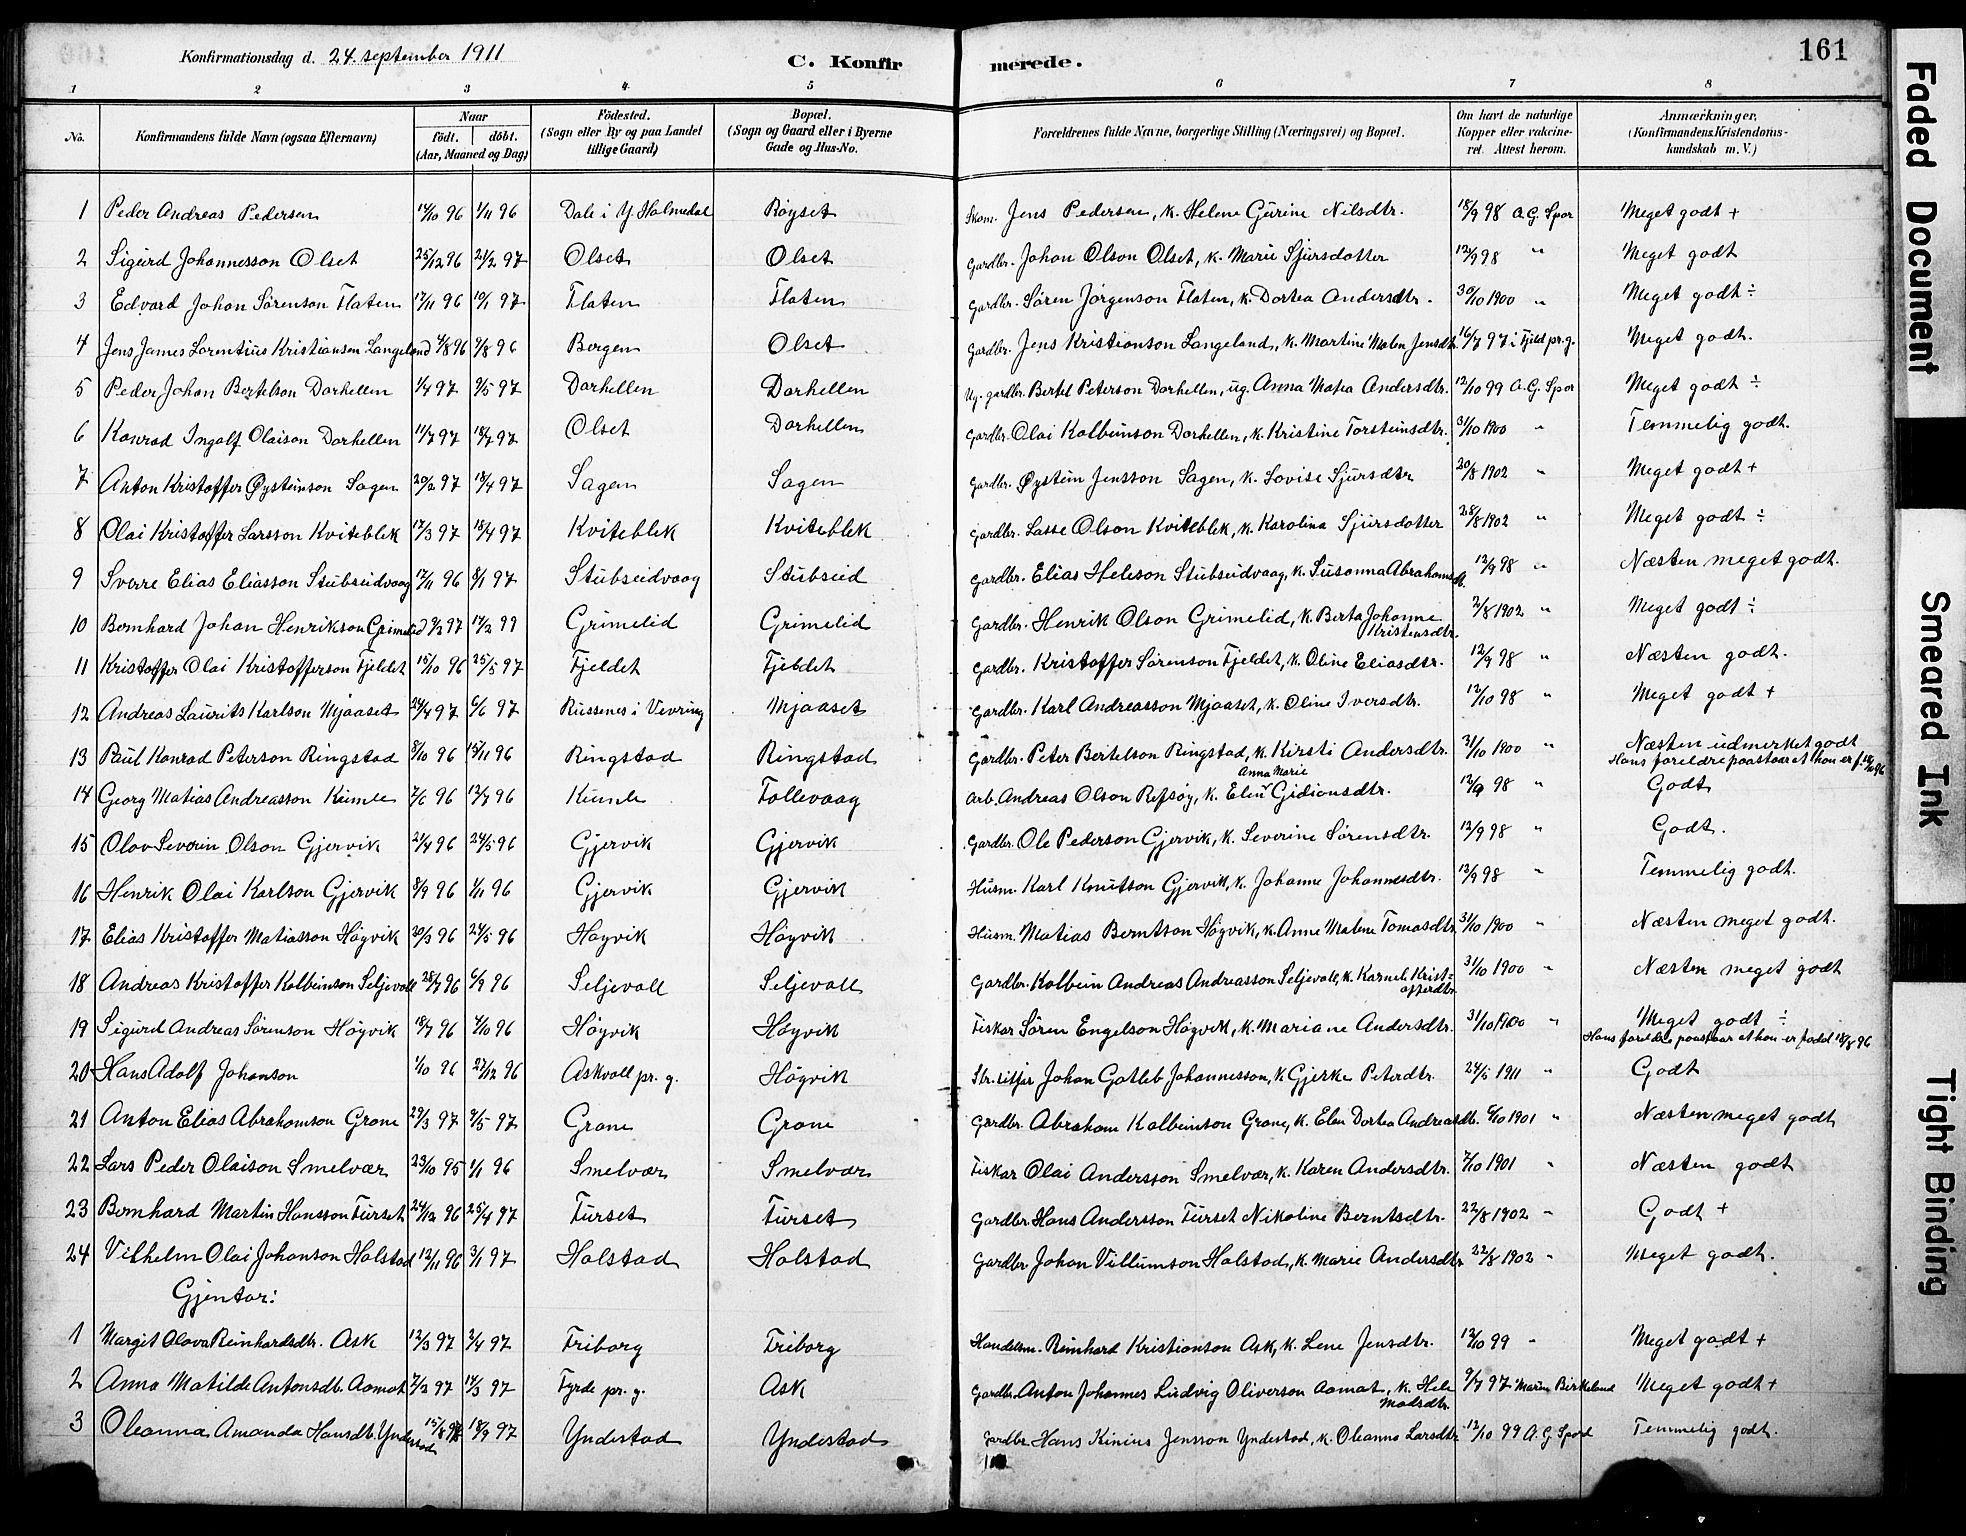 Konfirmationsdag d. 24. september 1911
C. Konfirmerede.
161
1 2 3 4 5 6 7 8
No. Konfirmandens fulde Navn (ogsaa Efternavn) Naar födt. döbt. (Aar, Maaned og Dag) Födested. (Sogn eller By og paa Landet tillige Gaard) Bopæl. (Sogn og Gaard eller i Byerne Gade og Hus-No. Forældrenes fulde Navne, borgerlige Stilling (Næringsvei) og Bopæl. Om havt de naturlige Kopper eller vakcineret. Attest herom. Anmærkninger, (Konfirmandens Kristendomskundskab m. V.)
1 Peder Andreas Pedersen 14/10 96 1/11 96 Dale i Y. Holmedal Røyset Skom. Jens Pedersen, K. Helene Gurine Nilsdtr. 18/9 98 A.G. Spor Meget godt +
2 Sigurd Johannesson Olset 25/12 96 21/2 97 Olset Olset Gardbr. Johan Olson Olset, K. Marie Sjursdotter 12/9 98 " Meget godt
3 Edvard Johan Sørenson Flaten 17/11 96 10/1 97 Flaten Flaten Gardbr. Søren Jørgenson Flaten, K. Dortea Andersdtr. 30/10 1900 " Meget godt ÷
4 Jens James Lorentius Kristiansen Langeland 4/8 96 9/8 96 Bergen Olset Gardbr. Jens Kristianson Langeland, K. Martine Malen Jensdtr. 16/7 97 i Fjeld pr.g. Meget godt.
5 Peder Johan Bertelson Dorhellen 1/4 97 9/5 97 Dorhellen Dorhellen Ug. gardbr. Bertel Peterson Dorhellen, ug. Anna Matea Andersdtr. 12/10 99 A.G. Spor Meget godt ÷
6 Konrad Ingolf Olaison Dorhellen 11/7 97 18/7 97 Olset Dorhellen Gardbr. Olai Kolbeinson Dorhellen, K. Kristine Torsteinsdtr. 31/10 1900 " Temmelig godt.
7 Anton Kristoffer Øysteinson Sagen 20/2 97 18/4 97 Sagen Sagen Gardbr. Øystein Jensson Sagen, K. Lovise Sjursdtr 20/8 1902 " Meget godt +
8 Olai Kristoffer Larsson Kviteblek 17/3 97 18/4 97 Kviteblek Kviteblek Gardbr. Lasse Olson Kviteblek, K. Karolina Sjursdotter 28/8 1902 " Meget godt ÷
9 Sverre Elias Eliasson Stubseidvaag 17/11 96 8/1 97 Stubseidvaag Stubseid Gardbr. Elias Heleson Stubseidvaag, K. Susanna Abrahamsdt. 12/9 98 " Næsten meget godt.
10 Bernhard Johan Henrikson Grimelid 9/2 97 17/2 99 Grimelid Grimelid Gardbr. Henrik Olson Grimelid, K. Berta Johanne Kristensdtr. 2/8 1902 " Meget godt ÷
11 Kristoffer Olai Kristofferson Fjeldet 15/10 96 25/5 97 Fjeldet Fjeldet Gardbr. Kristoffer Sørenson Fjeldet, K. Oline Eliasdtr. 12/9 98 " Næsten godt.
12 Andreas Laurits Karlson Mjaaset 24/4 97 6/6 97 Russenes i Vevring Mjaaset Gardbr. Karl Andreasson Mjaaset, K. Oline Iversdtr. 12/10 98 " Meget godt +
13 Paul Konrad Peterson Ringstad 8/10 96 15/11 96 Ringstad Ringstad Gardbr. Peter Bertelson Ringstad, K. Kirsti Andersdtr. 31/10 1900 " Næsten udmerket godt
Hans foreldre paastaar at han er f. 18/10 96
14 Georg Matias Andreasson Kumle 7/6 96 12/7 96 Kumle Follevaag Arb. Andreas Olson Refsøy, K. Elen Anna Marie Gidionsdtr. 12/9 98 " Godt
15 Olav Severin Olson Gjervik 21/4 96 24/5 96 Gjervik Gjervik Gardbr. Ole Pederson Gjervik, K. Severine Sørensdtr. 12/9 98 " Godt.
16 Henrik Olai Karlson Gjervik 8/9 96 1/11 96 Gjervik Gjervik Husm. Karl Knutson Gjervik, K. Johanne Johannesdtr. 12/9 98 " Temmelig godt.
17 Elias Kristoffer Matiasson Høgvik 20/3 96 24/5 96 Høgvik Høgvik Husm. Matias Berntson Høgvik, K. Anne Malene Tomasdtr. 31/10 1900 " Næsten meget godt.
18 Andreas Kristoffer Kolbeinson Seljevoll 28/7 96 6/9 96 Seljevoll Seljevoll Gardbr. Kolbein Andreas Andreasson Seljevoll, K. Karneli Kristofferdtr. 31/10 1900 " Næsten meget godt
19 Sigurd Andreas Sørenson Høgvik 18/7 96 4/10 96 Høgvik Høgvik Fiskar Søren Engelson Høgvik, K. Mariane Andersdtr. 31/10 1900 " Meget godt ÷
Hans foreldre paastaar at han er fødd 18/8 96
20 Hans Adolf Johanson 1/10 96 27/12 96 Askvoll pr. g. Høgvik Johan Gotleb Johannesson, K. Gjerke Peterdtr. 24/5 1911 " Godt
21 Anton Elias Abrahamson Grane 29/3 97 9/5 97 Grane Grane Gardbr. Abraham Kolbeinson Grane, K. Elen Dortea Andreasdtr. 6/10 1901 " Næsten meget godt
22 Lars Peder Olaison Smelvær 23/10 95 1/1 96 Smelvær Smelvær Fiskar Olai Andersson Smelvær, K. Karen Andersdtr. 7/10 1901 " Næsten godt
23 Bernhard Martin Hansson Furset 24/12 96 25/4 97 Furset Furset Gardbr. Hans Andersson Furset Nikoline Berntsdtr. 22/8 1902 " Godt +
24 Vilhelm Olai Johanson Holstad 12/11 96 3/1 97 Holstad Holstad Gardbr. Johan Villumson Holstad, K. Marie Andersdtr 22/8 1902 " Meget godt.
Gjentar:
1 Margit Olava Reinhardsdtr. Ask 12/3 97 2/4 97 Friborg Friborg Handelsm. Reinhard Kristianson Ask, K. Lene Jensdtr. 12/10 99 " Meget godt +
2 Anna Matilde Antonsdt. Aamot 7/2 97 14/3 97 Fyrde pr. g. Ask Gardbr. Anton Johannes Ludvig Oliverson Aamot, K. Hele Madsdtr. 9/7 97 Marin Birkeland Meget godt +
3 Oleanna Amanda Hansdt. Yndestad 15/8 97 18/9 97 Yndestad Yndestad Gardbr. Hans Kinius Jensson Yndestad, K. Oleanna Larsdtr. 12/10 99 A. G Spord Temmelig godt.
Faded Document
Smeared Ink
Tight Binding